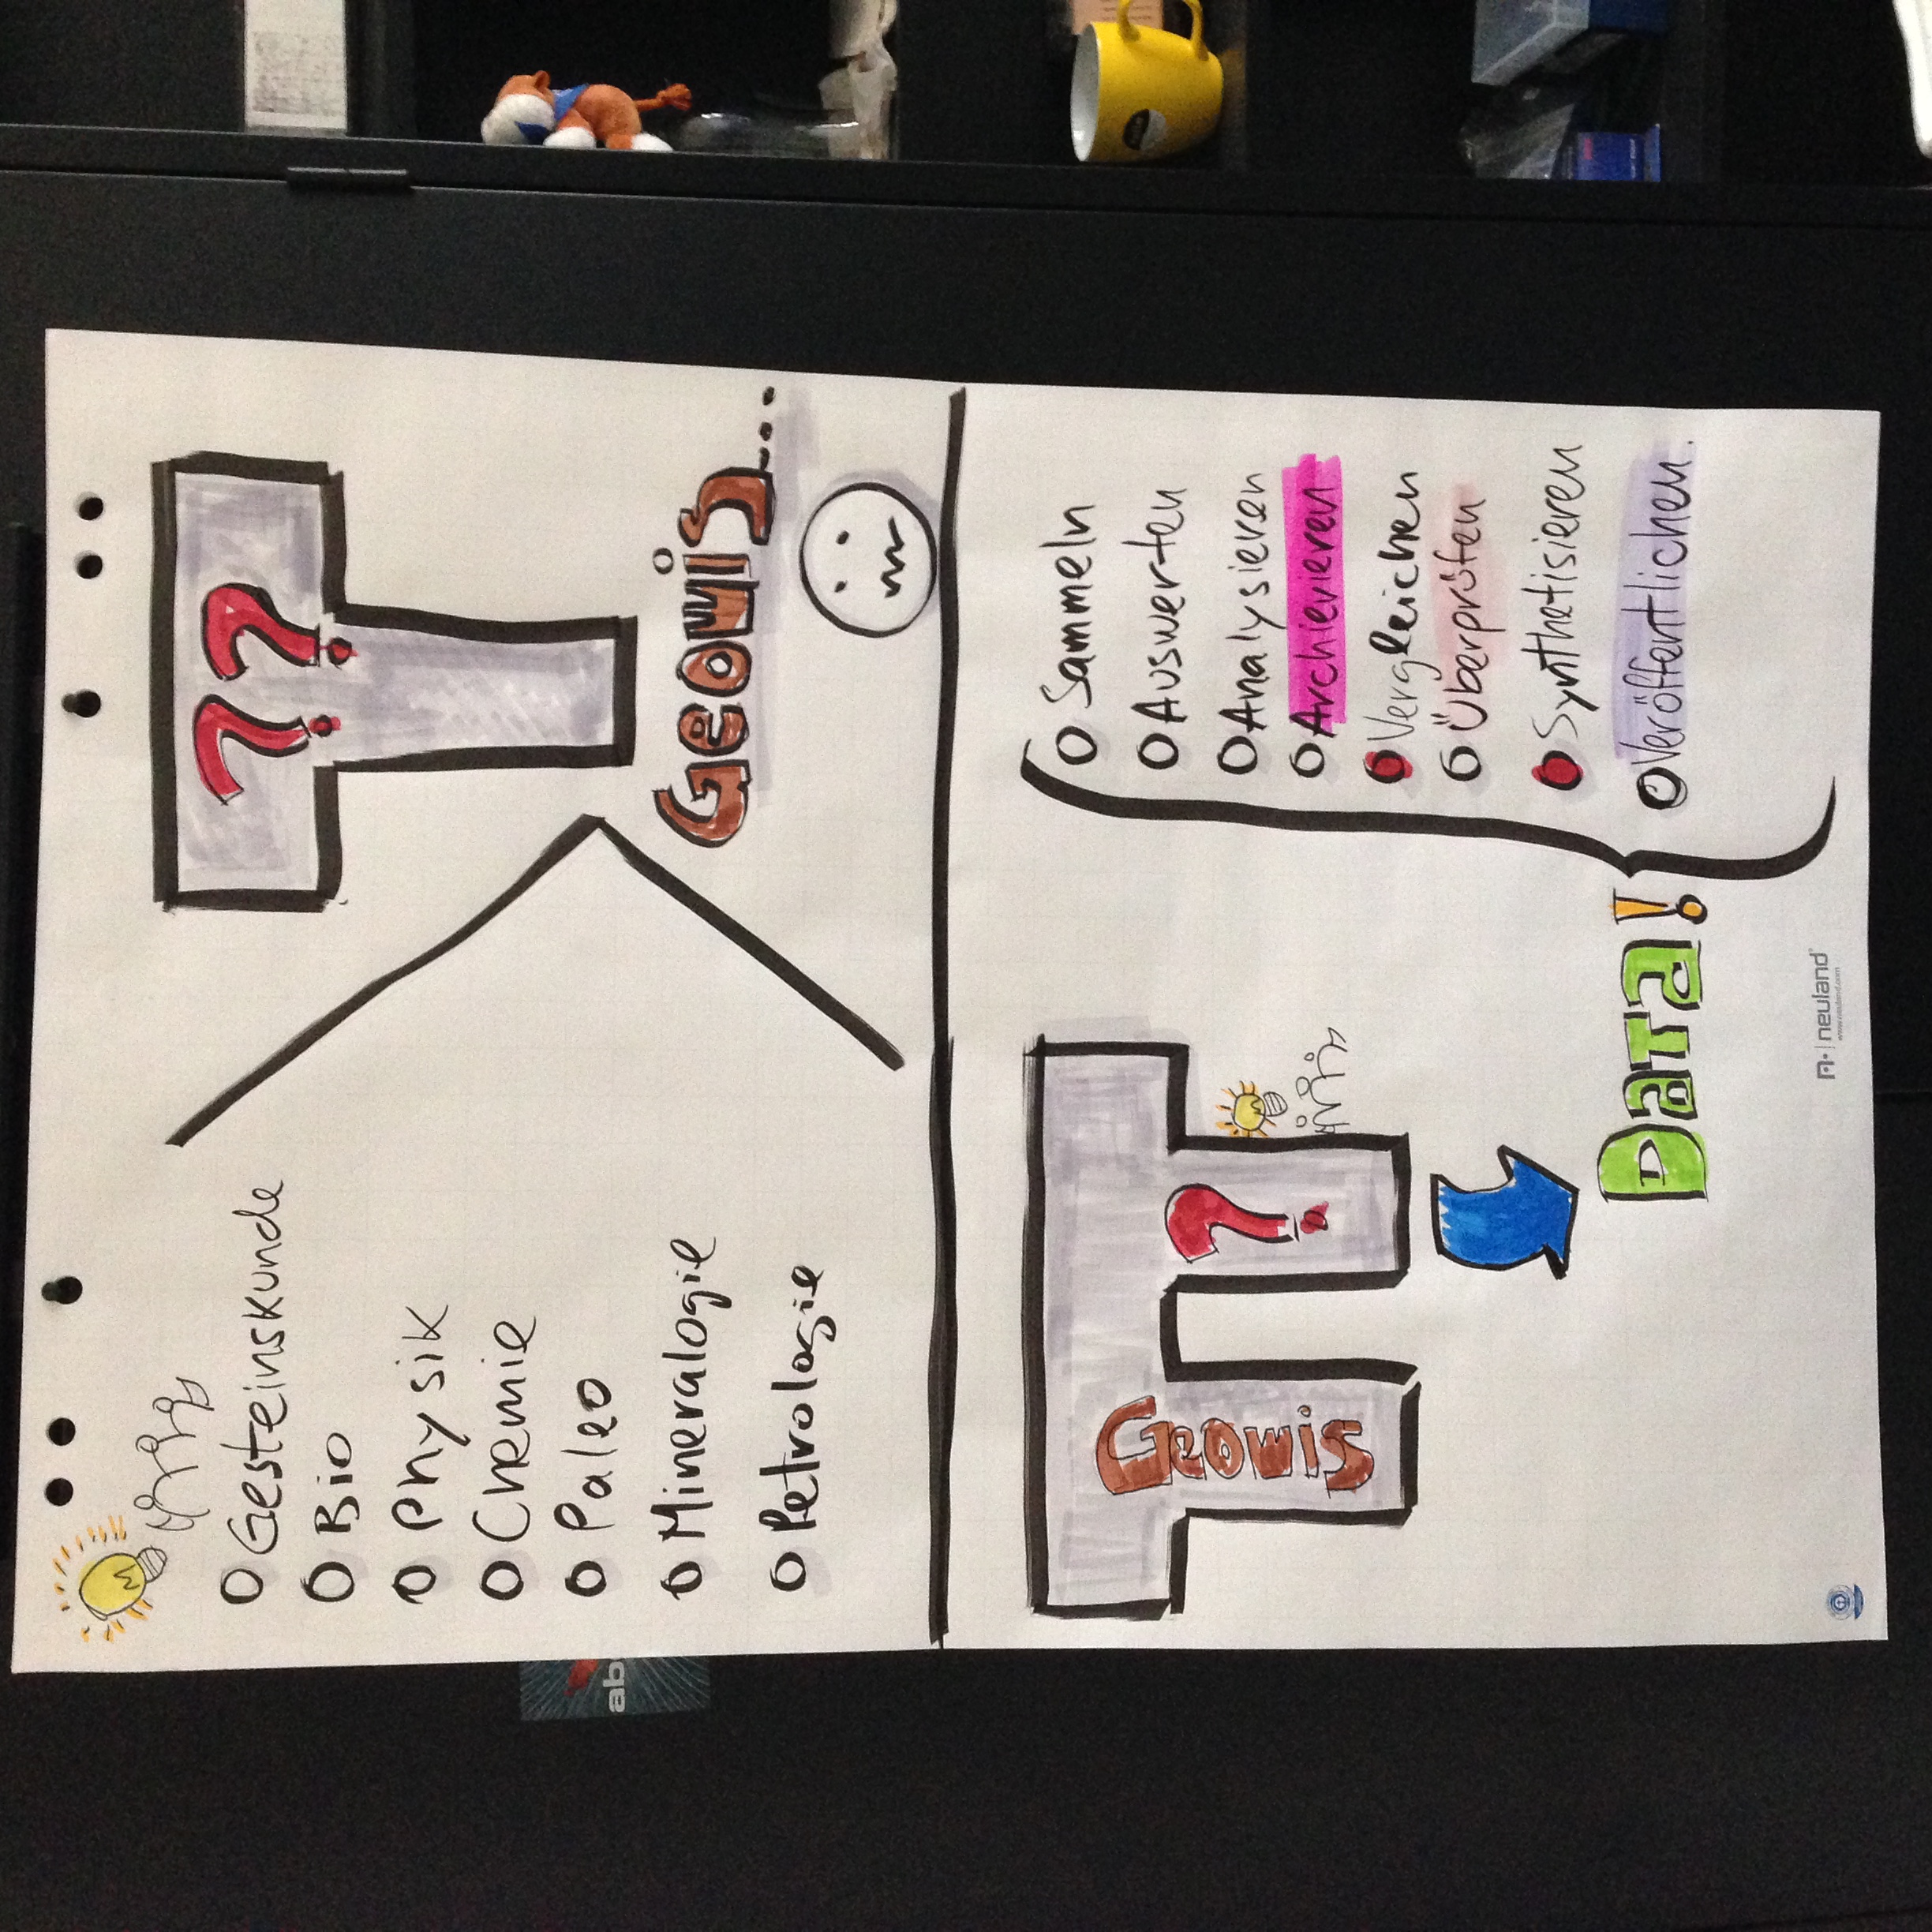 Gesteinskunde
Bio
Physik
Chemie
Paleo
Mineralogie
Petrologie
??
Geowis...
Geowis
?
Data!
Sammeln
Auswerten
Analysieren
Archievieren
Vergleichen
Überprüfen
Synthetisieren
Veröffentlichen.
neuland
www.neuland.com